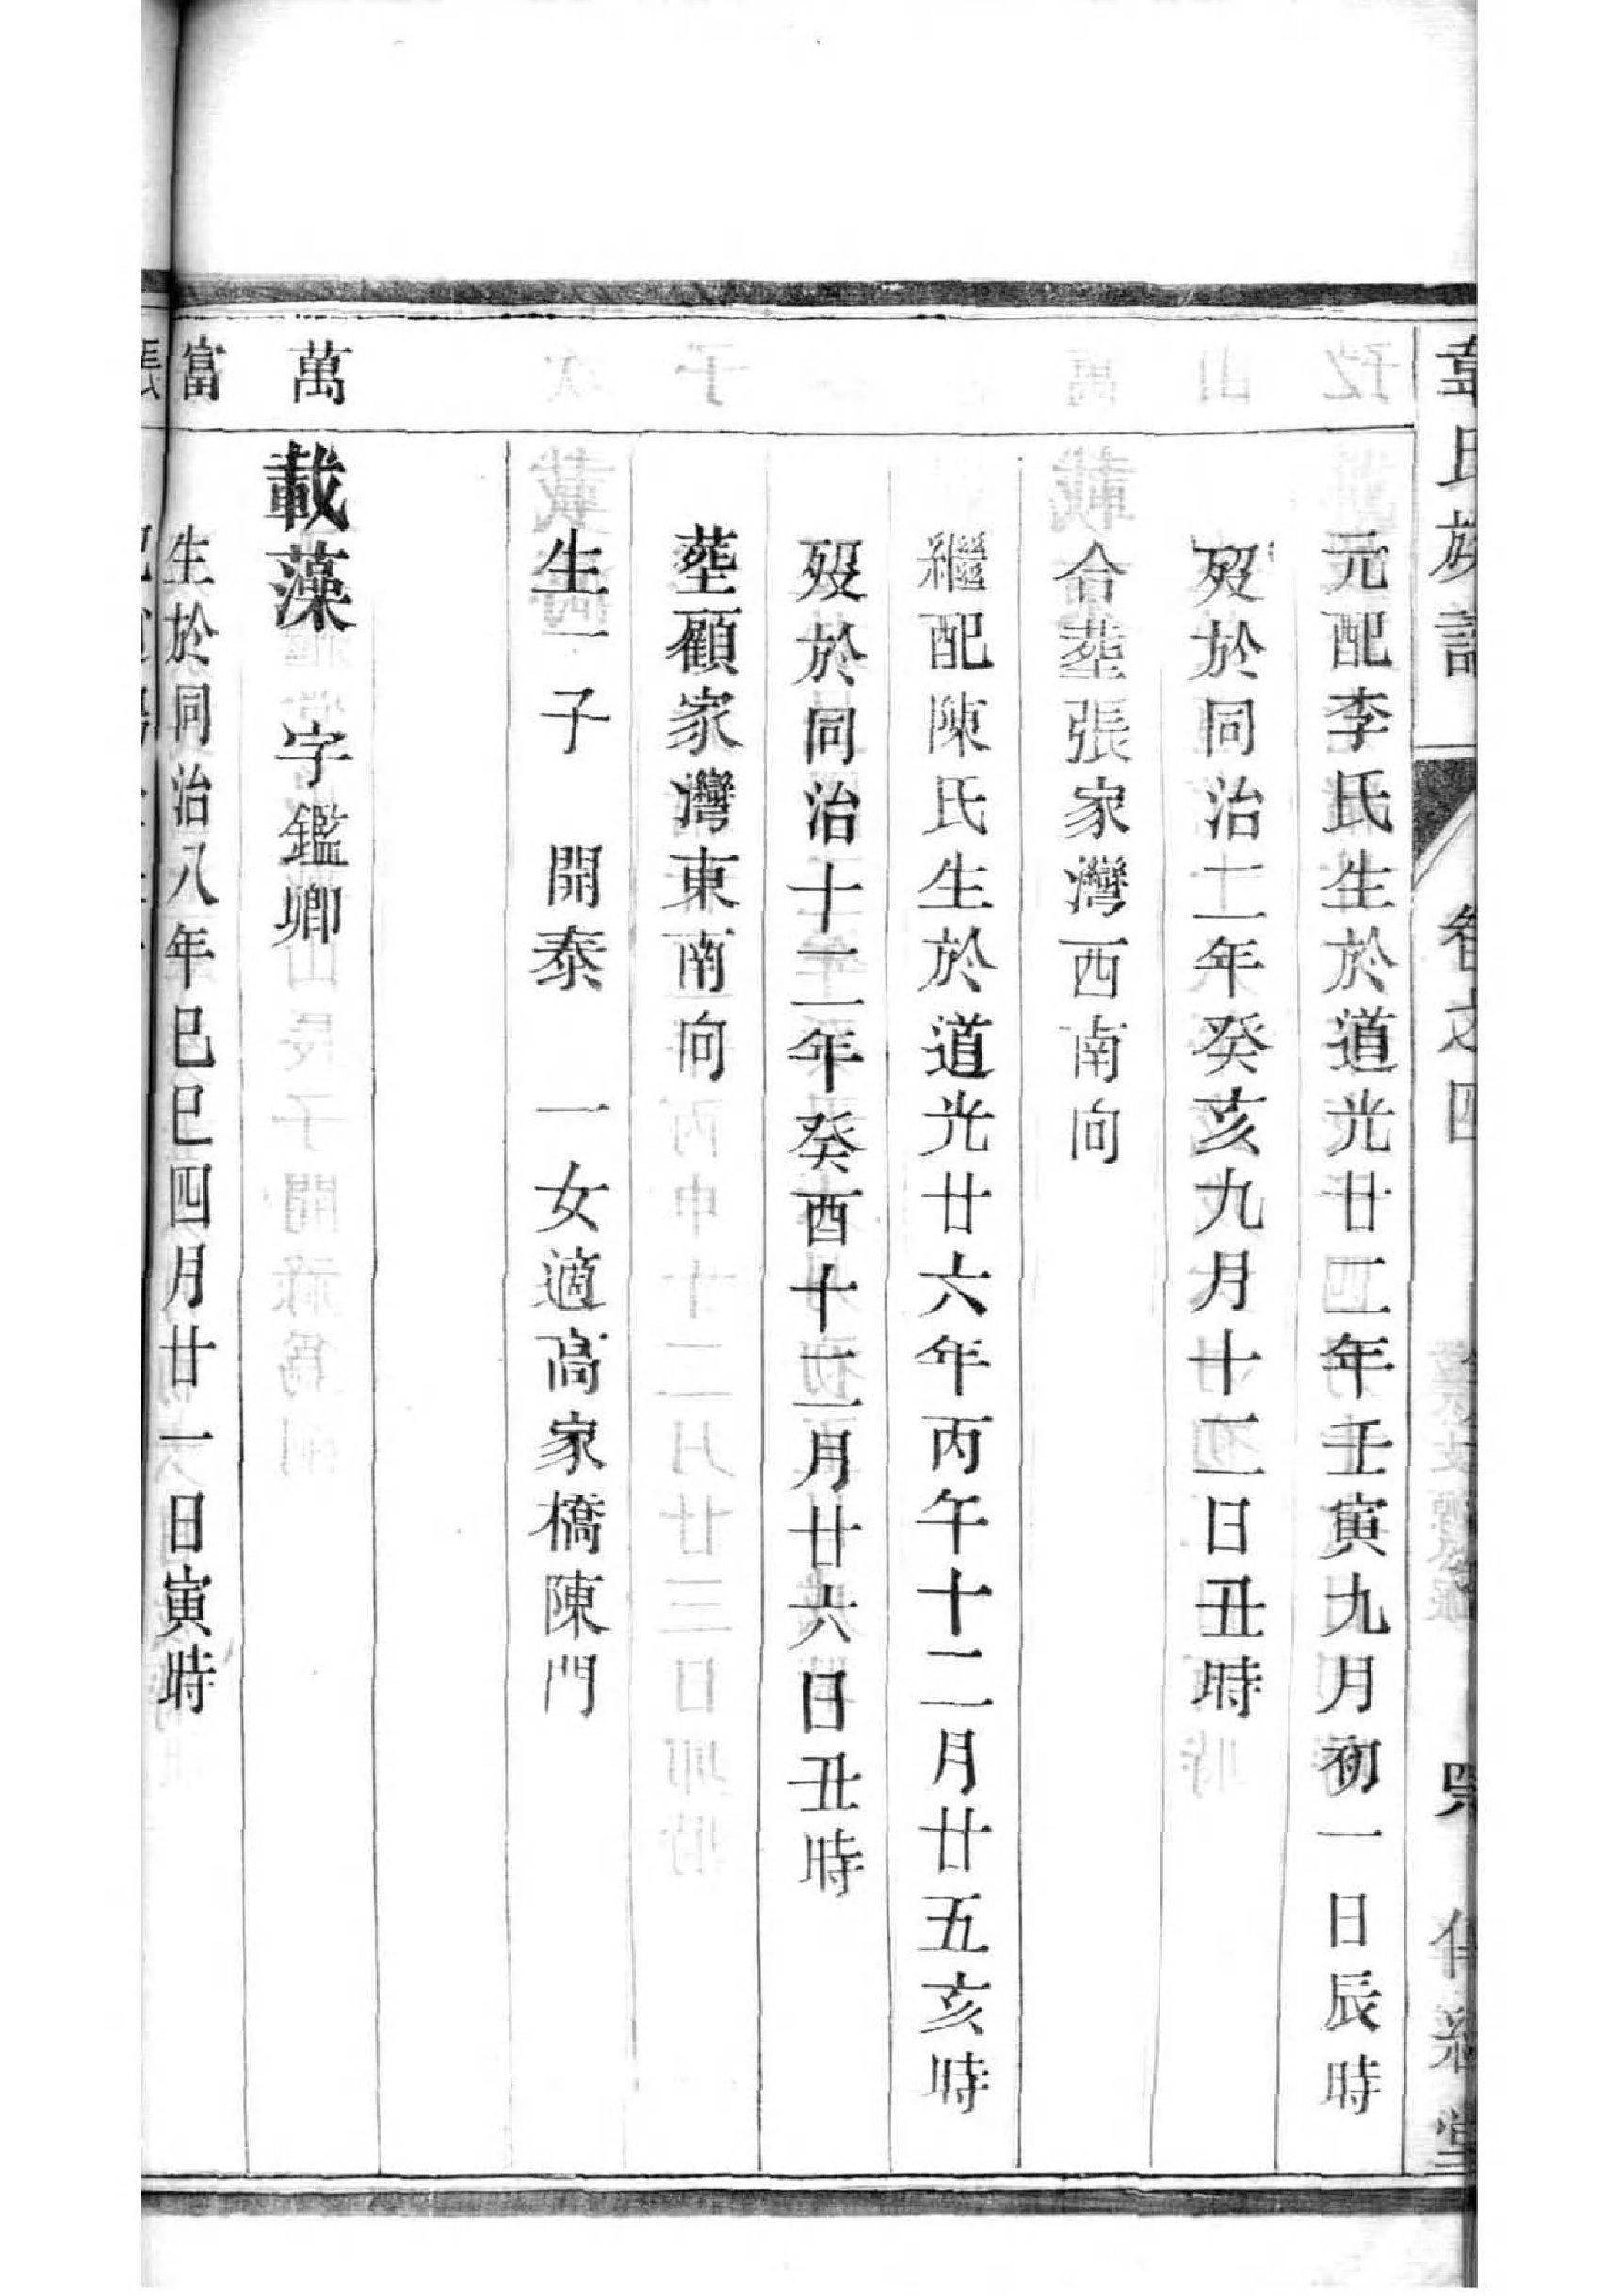 氏族譜 卷之四
元配李氏生於道光廿二年壬寅九月初一日辰時
歿於同治二年癸亥九月十二日丑時
合葬張家灣西南向
繼配陳氏生於道光廿六年丙午十二月廿五亥時
歿於同治十二年癸酉十二月廿六日丑時
葬顧家灣東南向
生一子 開泰 一女適高家橋陳門
萬
載藻 字鑑卿
富
生於同治八年巳巳四月廿一日寅時